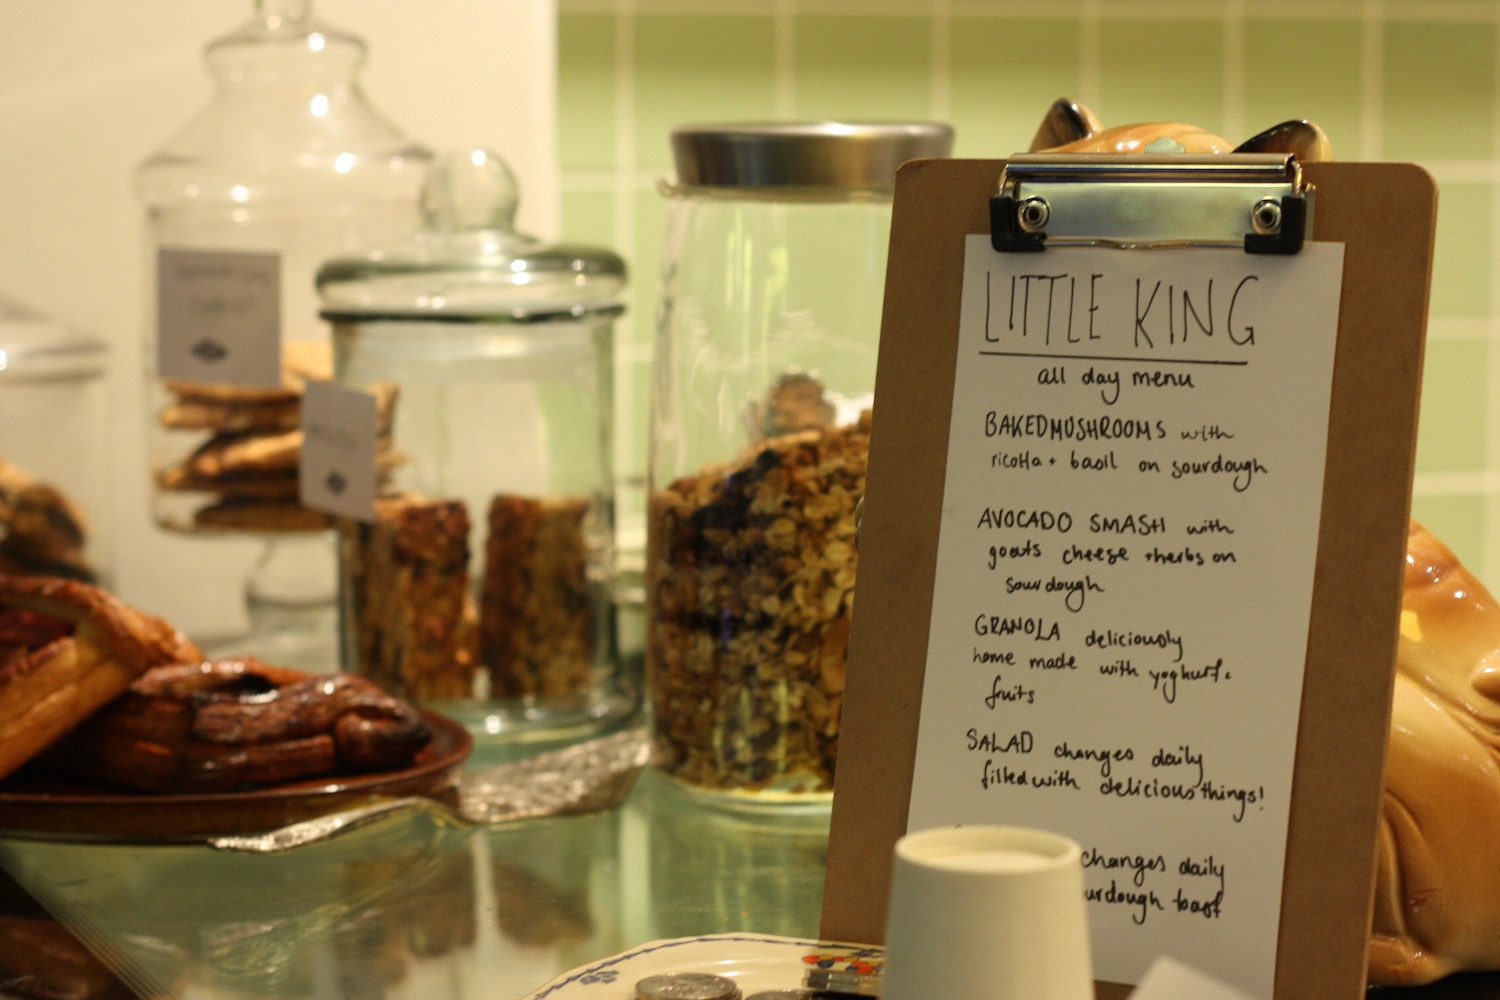 LITTLE KING
all day menu
BAKED MUSHROOMS with
ricotta + basil on sourdough
AVOCADO SMASH with
goats cheese + herbs on
sourdough
GRANOLA deliciously
home made with yoghurt +
fruits
SALAD changes daily
filled with delicious things!
changes daily
toast